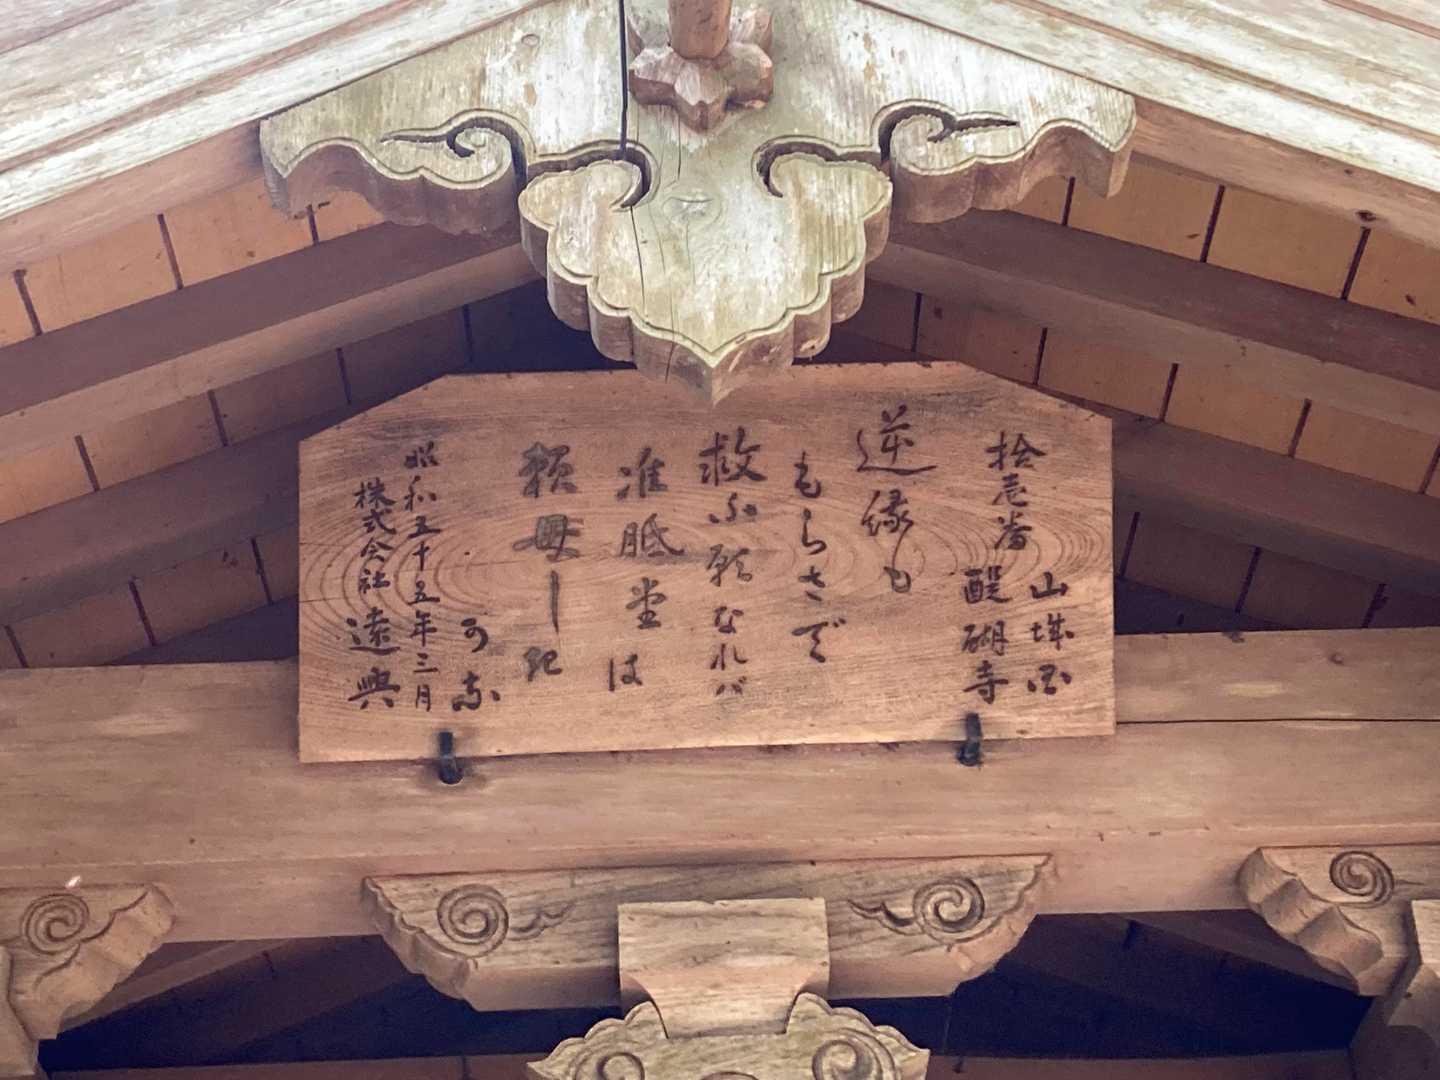 拾壱番
山城国
醍醐寺
逆縁も
もらさで
救ふ願なれバ
准胝堂は
頼母し記
可奈
昭和五十五年三月
株式会社 遠興